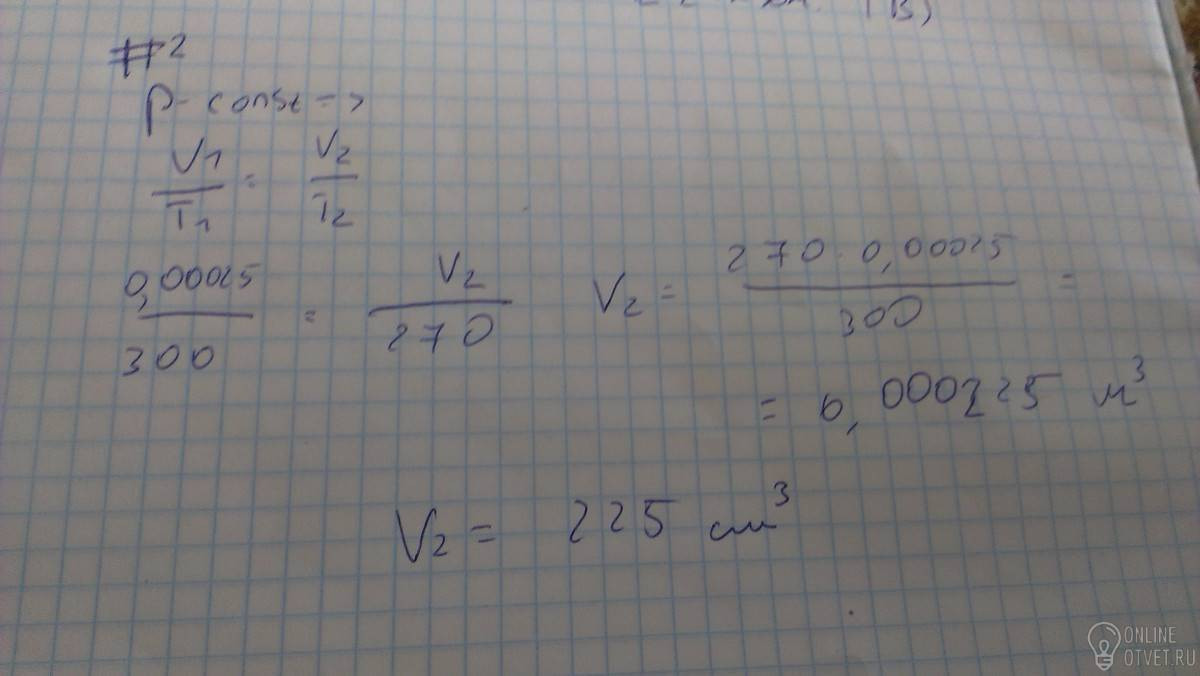 (B)
#2
p - const =>
V1/T1 = V2/T2
0,00025/300 = V2/270 V2 = 270 · 0,00025/300 =
= 0,000225 м³
V2 = 225 см³
ONLINE
OTVET.RU